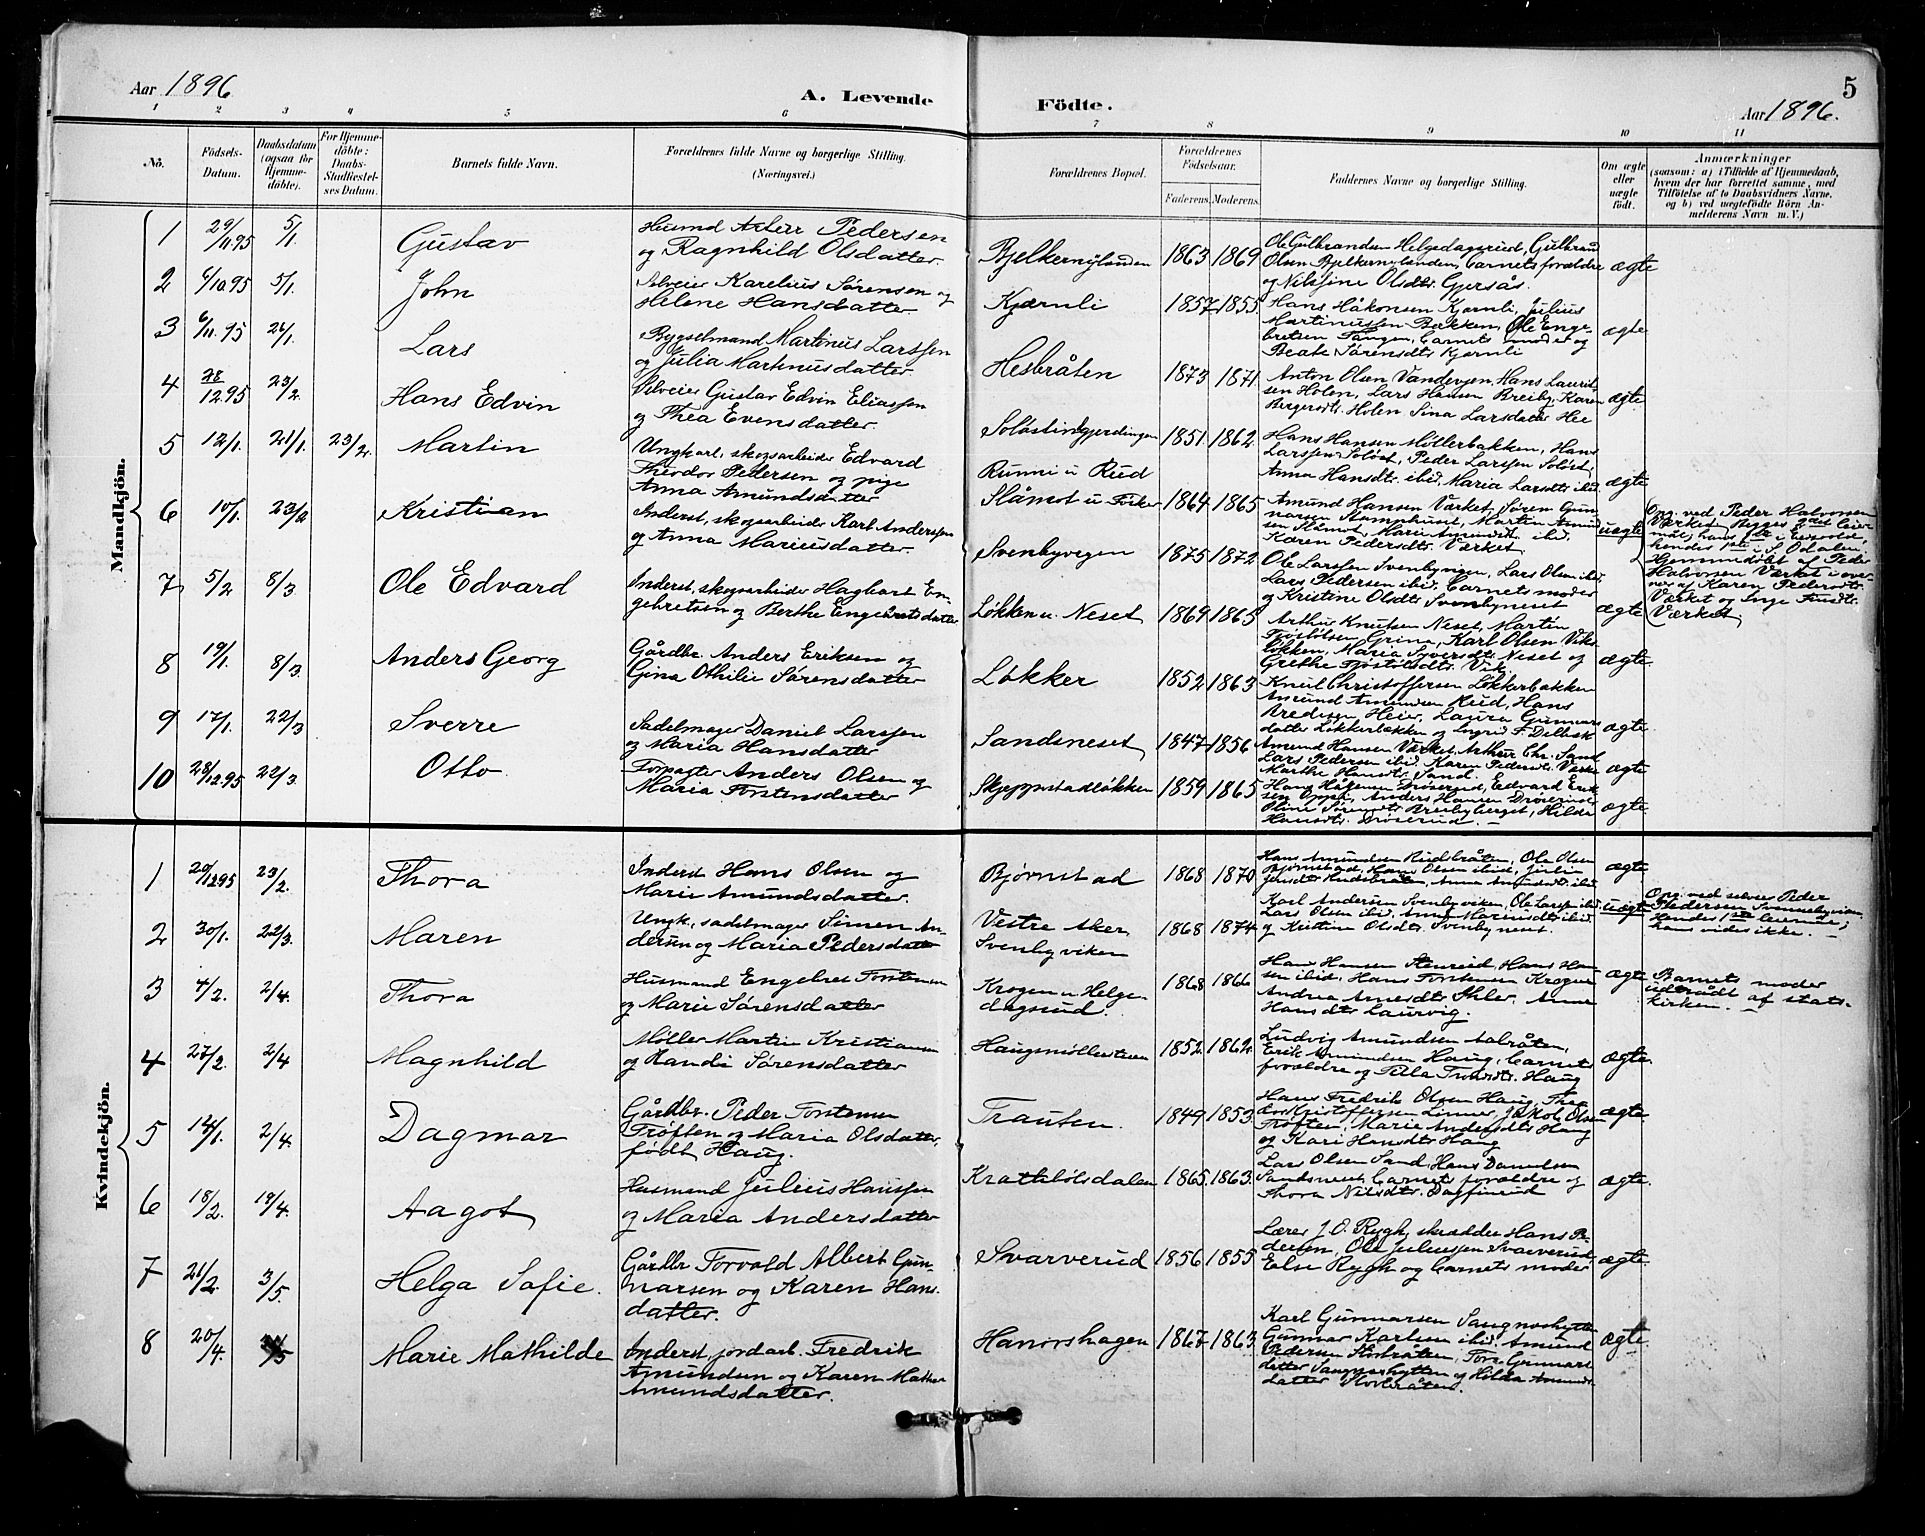 Aar 1896
A. Levende
Födte.
5
Aar 1896.
1 2 3 4 5 6 7 8 9 10 11
No.
Födsels-Datum.
Daabsdatum (ogsaa for Hjemme-döbte).
For Hjemme-döbte: Daabs-Stadfæstel-ses Datum.
Barnets fulde Navn.
Forældrenes fulde Navne og borgerlige Stilling.
(Næringsvei.)
Forældrenes Bopæl.
Forældrenes Födselsaar.
Faderens. Moderens.
Faddernes Navne og borgerlige Stilling.
Om ægte eller uægte födt.
Anmærkninger
(saasom: a) i Tilfælde af Hjemmedaab,
hvem der har forrettet samme, med
Tilföielse af to Daabsvidners Navne,
og b) ved uægtefödte Börn An-
melderens Navn m. V.)
Mandkjön.
1 29/11.95 5/1. Gustav
Husmd Artur Pedersen
og Ragnhild Olsdatter.
Bjelkernylanden 1863 1869
Ole Gulbrandsen Helgedagsrud, Gulbrand
Olsen Bjelkernylanden, barnets forældre
og Niksine Olsdtr. Gjersås.
ægte
2 6/10.95 5/1. John
Selveier Karelius Sørensen og
Helene Hansdatter.
Kjærnli 1857 1855.
Hans Håkonsen Kjernli, Julius
Martinussen Bakken, Ole Enge-
bretsen Tangen, barnets moder og
Beate Sørensdtr Kjernli
ægte
3 6/11.95 26/1. Lars
Bygselmand Martinus Larssen
og Julia Martinusdatter.
Hesbråten 1873 1871.
Anton Olsen Vandergen, Hans Laurit-
sen Holen, Lars Hansen Breiby, Karen
Bergersdtr. Holen Sina Larsdatter Hee
ægte
4 28/12.95 23/2. Hans Edvin
Selveier Gustav Edvin Eliassen
og Thea Evensdatter.
1851. 1862.
Hans Hansen Møllerbakken, Hans
Larssen Soløst, Peder Larssen Soløst,
Anna Hansdtr. ibid. Maria Larsdtr. ibid.
ægte
5 12/1. 21/1. 23/2. Martin
Ungkarl, skogsarbeider Edvard
Theodor Pedersen og pige
Anna Amundsdatter
Runni u Rud
Slåmot u Fisker 1864 1865
Amund Hansen Værket, Søren Gun-
narsen Stamphuset, Martin Amund
sen Slåmot, Marie Amundsdtr. ibid.
Karen Pedersdtr. Værket
uægte
Opg. ved Peder Halvorsen
Værket Begges 2det leier-
mål; hans 1ste i Eidsvold,
hendes 1ste i S. Odalen
Hjemmedøbt af Peder
Halvorsen Værket i over-
vær af Karen Pedersdtr.
Værket og Inge
Værket
6 10/1. 23/2 Kristian
Inderst, skogsarbeider Karl Anderssen
og Anna Mariusdatter.
Svenbyvegen 1875 1872
Ole Larssen Svenbyvigen, Lars Olsen ibid.
Lars Pedersen ibid. barnets moder
og Kristine Olsdtr Svenbyneset
ægte
7 5/2 8/3. Ole Edvard
Inderst, skogsarbeider Hagbart En-
gebretsen og Berthe Engebretsdatter
Løkken u. Neset 1869 1865
Arthur Knutsen Neset, Martin
Fjøstølsen Grina, Karl Olsen Viks
løkken, Maria Syversdtr. Neset og
Grethe Fjøstølsdtr. Vik.
ægte
8 19/1. 8/3. Anders Georg
Gårdbr. Anders Eriksen og
Gina Othilie Sørensdatter
Løkker 1852 1863
Knut Christoffersen Løkkerbakken
Amund Amundsen Rud, Hans
Bredesen Heier, Laura Gunnars
datter Løkkerbakken og Ingrid F. Delbæk
ægte.
9 17/1. 22/3 Sverre
Sadelmager Daniel Larssen
og Maria Hansdatter
Sandsneset 1847 1856
Amund Hansen Værket, Arthur Chr. Sand
Lars Pedersen ibid. Karen Pedersdtr. Værket
Marthe Hansdtr. Sand.
ægte
10 28/12.95 22/3. Otto
Forpagter Anders Olsen og
Maria Torstensdatter
Skjeppstadløkken 1859 1865
Hans Håkensen Droserud, Edvard Erik
sen Oppsi, Anders Hansen Droserud,
Oline Sørensdtr Breibyberget, Hilda
Hansdtr. Drøserud.
ægte.
Kvindekjön.
1 20/12.95 23/2. Thora
Inderst Hans Olsen og
Marie Amundsdatter.
Bjørnstad 1868 1870
Hans Amundsen Rudsbråten, Ole Olsen
Bjørnstad, Hans Olsen ibid, Julia
Jensdtr Rudsbråten, Anna Amundsdtr. ibid
ægte
2 30/1. 22/3. Maren
Ungk., sadelmager Simen An-
dersen og Maria Pedersdatter
Vestre Aker
Svenbyviken
1868 1874
Karl Andersen Svenbyviken, Ole Larssen ibid.
Lars Olsen ibid. Anna Mariusdtr. ibid
og Kristine Olsdtr. Svenbyneset.
uægte
Opg. ved selveier Peder
Pedersen Svennebyvigen
Hendes 1ste leierm.;
hans vides ikke.
3 4/2. 2/4. Thora
Husmand Engebret Torstensen
og Marie Sørensdatter
Krogen u Helge-
dagsrud.
1868 1866
Hans Hansen Stenreid, Hans Han
sen ibid, Hans Torstensen Krogen
Andrea Arnesdtr Ihler. Anne
Hansdtr Laurvig.
ægte
Barnets moder
udtrådt af stats-
kirken.
4 27/2. 2/4 Magnhild
Møller Martin Kristiansen
og Randi Sørensdatter
Haugsmøllerstuen 1852 1862
Ludvig Amundsen Aabråten,
Erik Amundsen Haug, barnets
forældre og Pella Trondsdtr. Haug
ægte.
5 14/1. 2/4. Dagmar
Gårdbr. Peder Torstensen
Trøften og Maria Olsdatter,
født Haug.
Trauten. 1849 1853.
Hans Fredrik Olsen Haug, Theo
dor Kristoffersen Linner, Jakob Olsen
Trøften, Marie Andersdtr Haug
og Kari Hansdtr Haug
ægte
6 18/2. 19/4. Aagot
Husmand Julius Hanssen
og Maria Andersdatter
Krattebølsdalen 1865. 1863.
Lars Olsen Sand, Hans Danielsen
Sandsneset, barnets forældre og
Thora Nilsdtr. Dagfinrud
ægte.
7 21/2. 3/5. Helga Sofie.
Gårdbr Torvald Albert Gun-
narsen og Karen Hans-
datter.
Svarverud 1856 1855
Lærer J. O. Rygh, skrædder Hans Pe-
dersen, Ole Juliussen Svarverud,
Else Rygh og barnets moder
ægte.
8 20/4. Marie Mathilde
Inderst, jordarb. Fredrik
Amundsen og Karen Mathea
Amundsdatter.
Hanorshagen 1867. 1863.
Karl Gunnarsen Sangnæshytten
Gunnar Karlsen ibid Amund
Pedersen Storbråten, Tore Gunnars
datter Sangnæshytten og Hilda Amunds-
datter Storbråten.
ægte